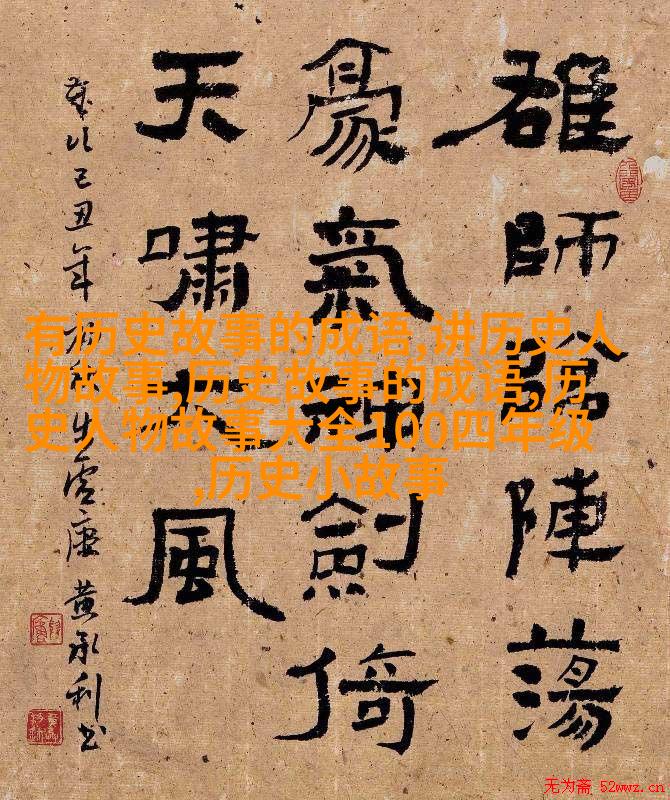 雄師臨陣蕩
豪氣神劍倚
天嘯大風
歲次己丑年
黄承利书
有历史故事的成语,讲历史人
物故事,历史故事的成语,历
史人物故事大全100四年级
,历史小故事
无为斋 52wwz.cn